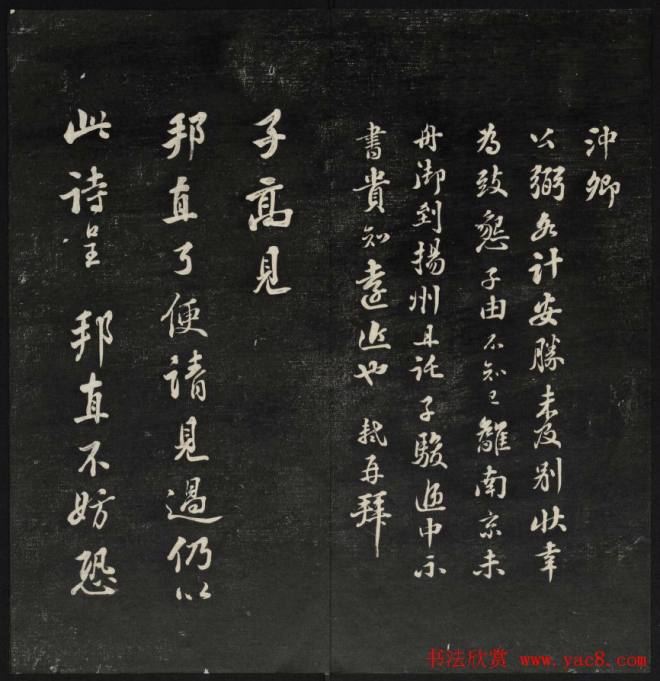 沖卿
公弼各計安勝未及别狀幸
为致懇子由不知已離南京未
舟御到揚州且託子駿遞中示
書貴知遠近也 軾再拜
子高見
邦直了便請見過仍以
此诗呈 邦直不妨恐
书法欣赏 www.yac8.com